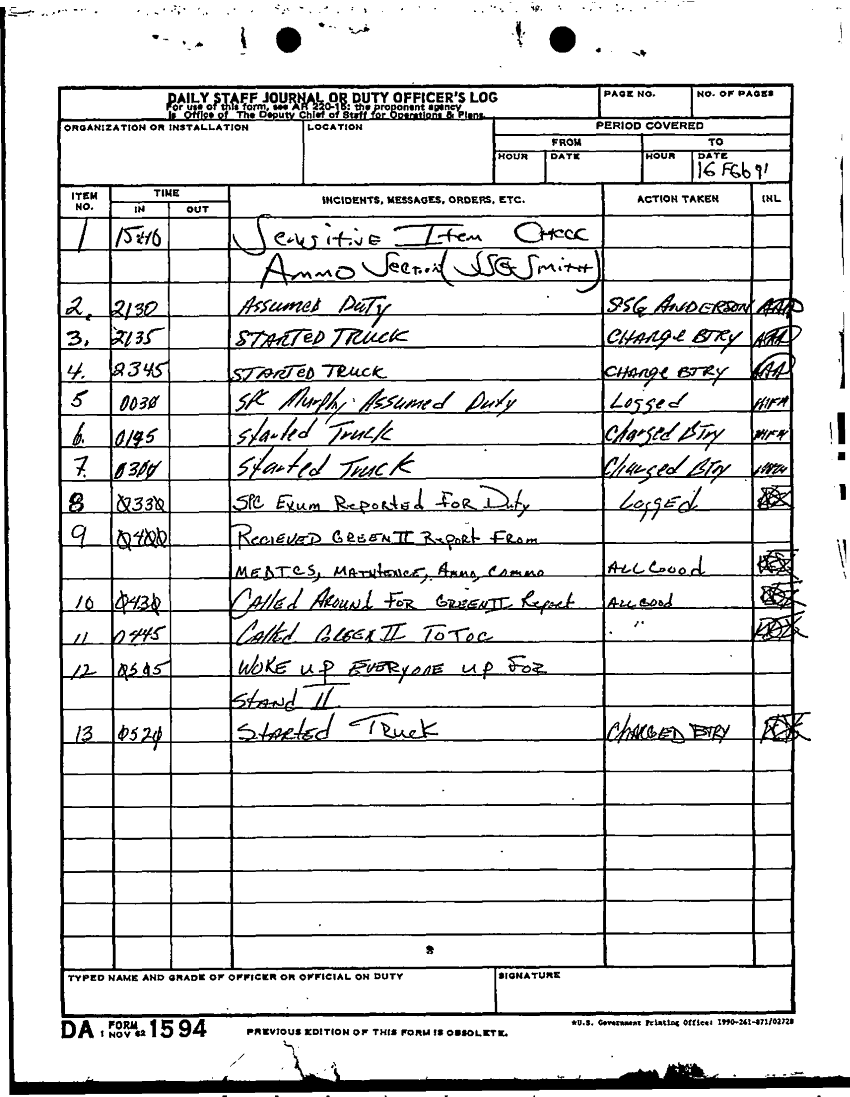 DAILY STAFF JOURNAL OR DUTY OFFICER'S LOG
For use of this form, see AR 220-15; the proponent agency
is Office of The Deputy Chief of Staff for Operations & Plans.
PAGE NO.
NO. OF PAGES
ORGANIZATION OR INSTALLATION
LOCATION
PERIOD COVERED
FROM
TO
HOUR DATE HOUR DATE
16 Feb 91
ITEM NO. TIME IN OUT INCIDENTS, MESSAGES, ORDERS, ETC. ACTION TAKEN INL
1 1540 Sensitive Item Check
Ammo Section (SSG Smith)
2. 2130 Assumed Duty SSG ANDERSON AAA
3. 2135 STARTED TRUCK CHARGE BTRY AAA
4. 2345 STARTED TRUCK CHARGE BTRY AAA
5 0030 SPC Murphy Assumed Duty Logged
6. Started Truck Charged BTry
7. 0300 Started Truck Charged BTry
8 0330 SPC Exum Reported For Duty Logged
9 0400 RECIEVED GREEN II Report From
MEDICS, MAINTENCE, Ammo, Commo ALL Good
10 0430 CAlled Around For GREEN II Report ALL GOOD
11 0445 Called GREEN II To TOC "
12 0505 WOKE UP EVERYONE UP FOR
STAND II
13 0520 STARTED TRUCK CHARGED BTRY
TYPED NAME AND GRADE OF OFFICER OR OFFICIAL ON DUTY
SIGNATURE
DA FORM 1 NOV 62 1594
PREVIOUS EDITION OF THIS FORM IS OBSOLETE.
*U.S. Government Printing Office: 1990-261-871/02728